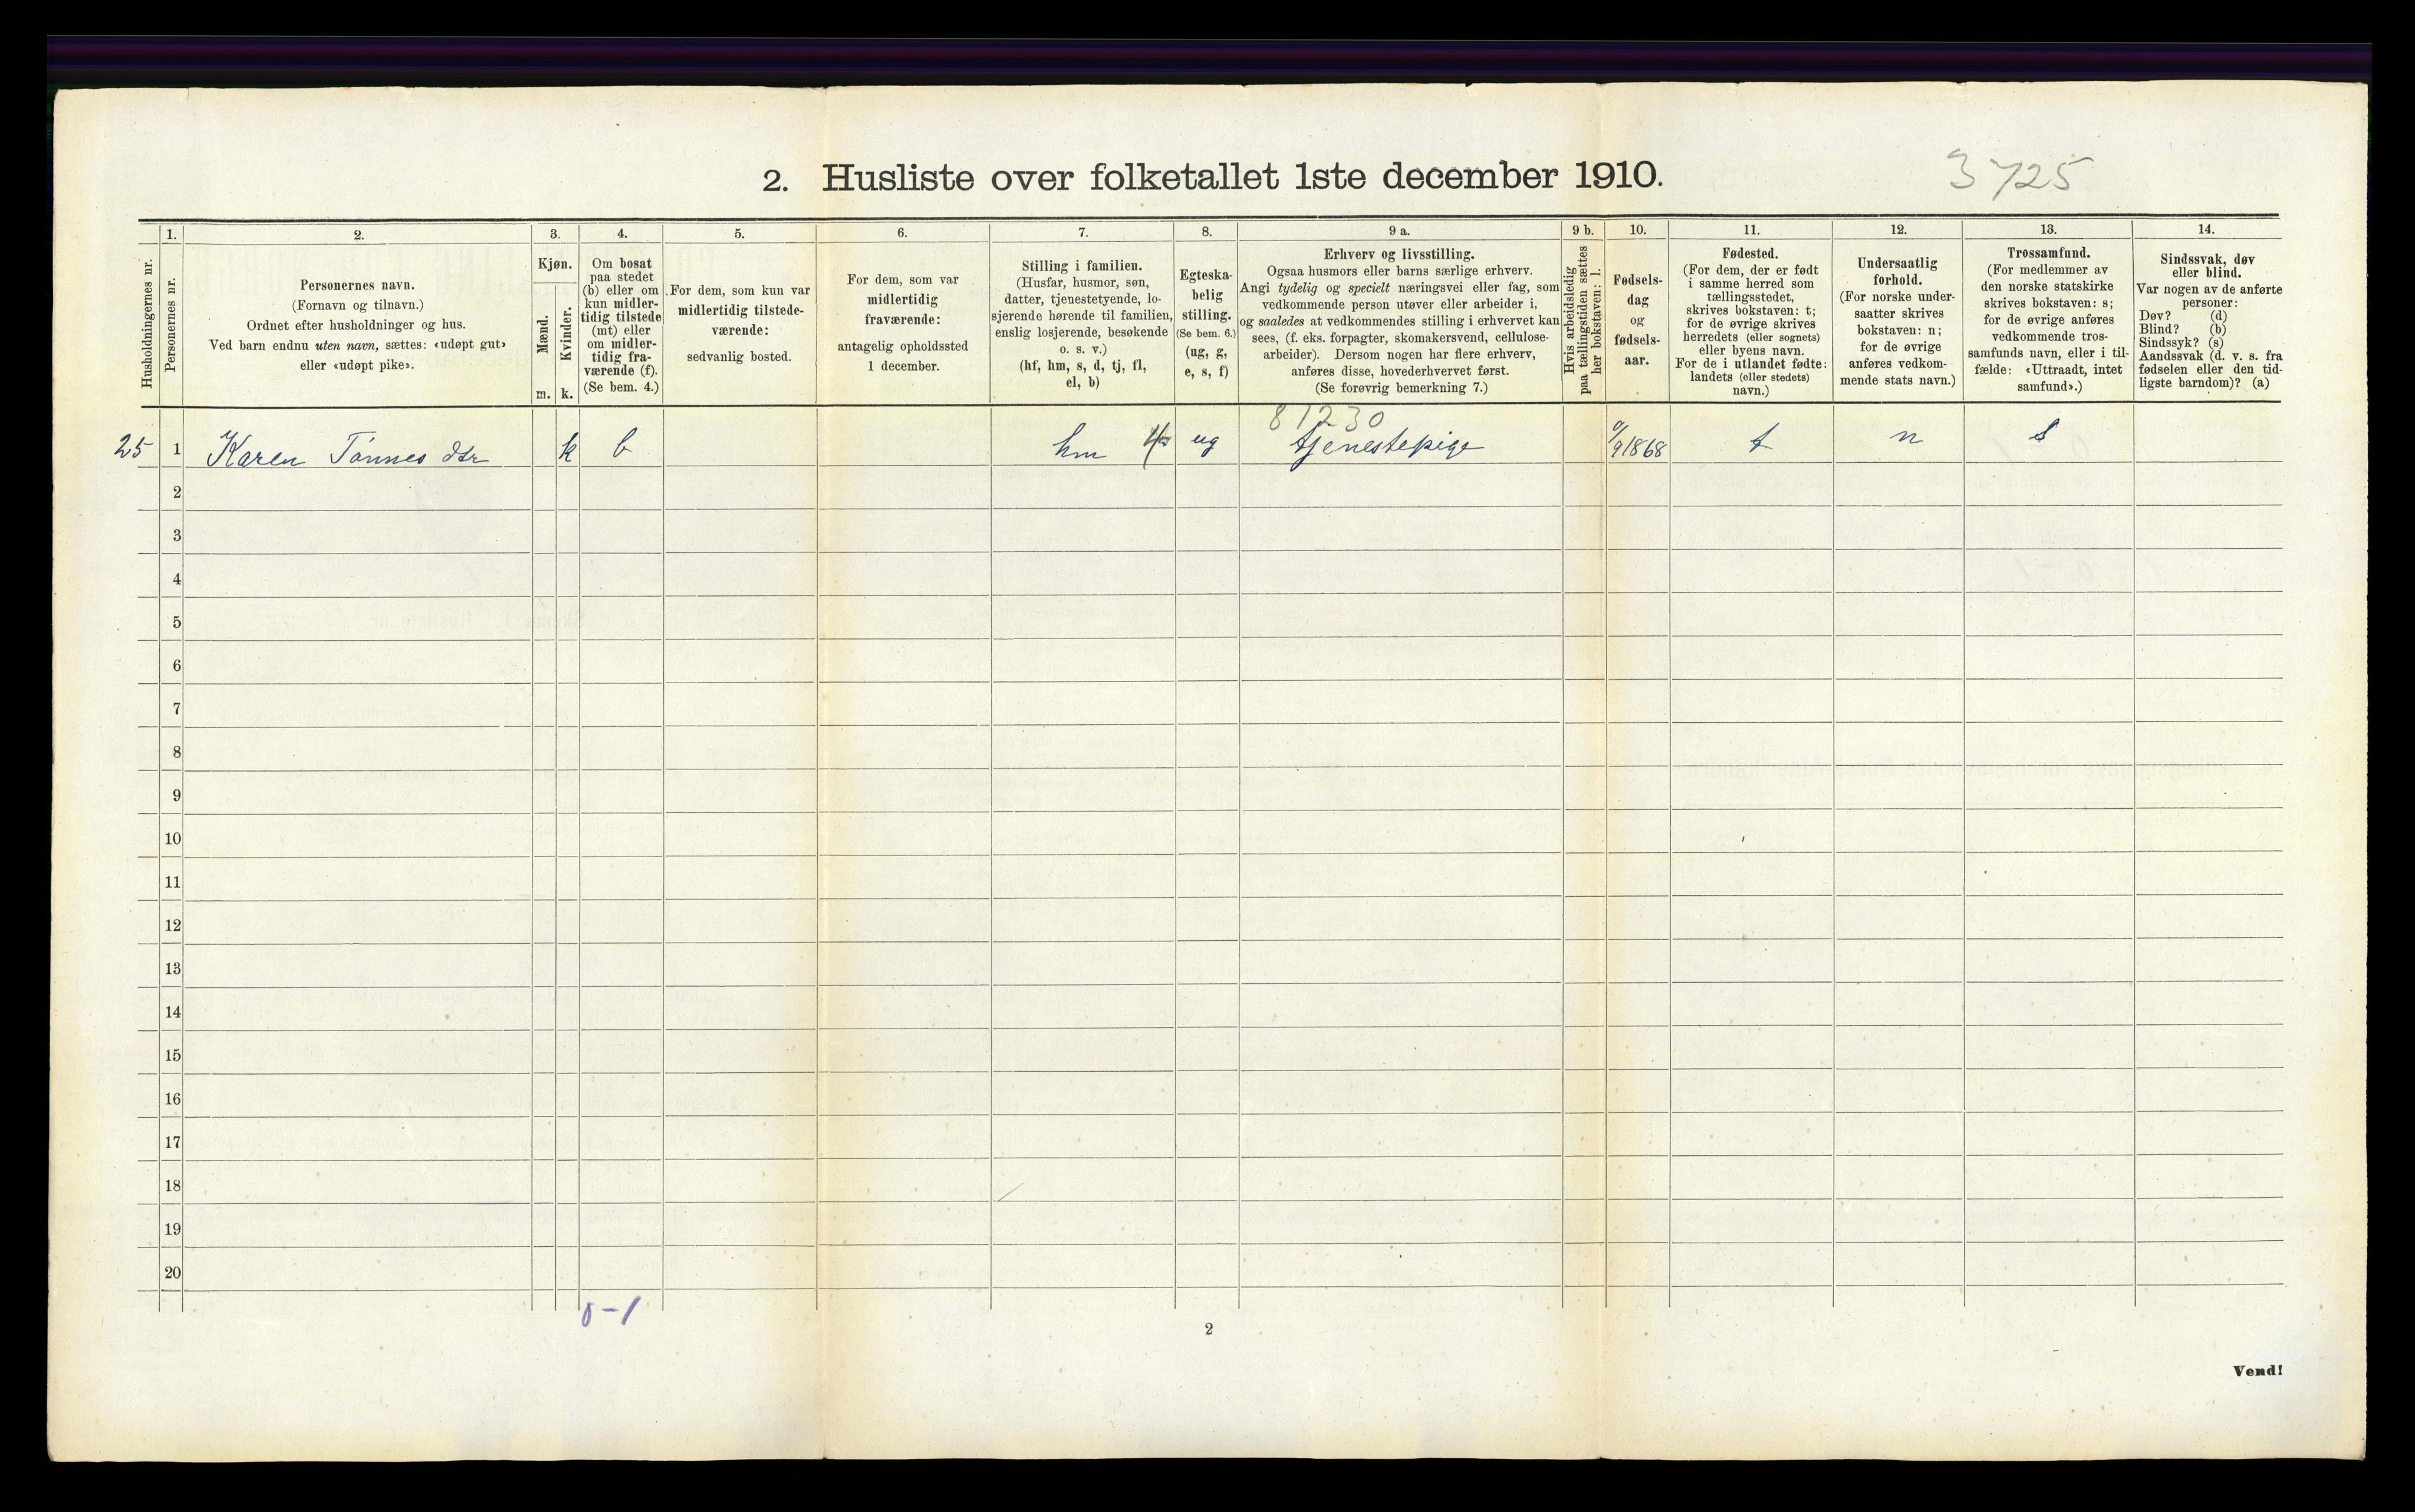 2. Husliste over folketallet 1ste december 1910.
3725
1. 2. 3. 4. 5. 6. 7. 8. 9 a. 9 b. 10. 11. 12. 13. 14.
Husholdningernes nr.
Personernes nr.
Personernes navn.
(Fornavn og tilnavn.)
Ordnet efter husholdninger og hus.
Ved barn endnu uten navn, sættes: «udøpt gut»
eller «udøpt pike».
Kjøn.
Mænd.
Kvinder.
m. k.
Om bosat
paa stedet
(b) eller om
kun midler-
tidig tilstede
(mt) eller
om midler-
tidig fra-
værende (f).
(Se bem. 4.)
For dem, som kun var
midlertidig tilstede-
værende:
sedvanlig bosted.
For dem, som var
midlertidig
fraværende:
antagelig opholdssted
1 december.
Stilling i familien.
(Husfar, husmor, søn,
datter, tjenestetyende, lo-
sjerende hørende til familien,
enslig losjerende, besøkende
o. s. v.)
(hf, hm, s, d, tj, fl,
el, b)
Egteska-
belig
stilling.
(Se bem. 6.)
(ug, g,
e, s, f)
Erhverv og livsstilling.
Ogsaa husmors eller barns særlige erhverv.
Angi tydelig og specielt næringsvei eller fag, som
vedkommende person utøver eller arbeider i,
og saaledes at vedkommendes stilling i erhvervet kan
sees, (f. eks. forpagter, skomakersvend, cellulose-
arbeider). Dersom nogen har flere erhverv,
anføres disse, hovederhvervet først.
(Se forøvrig bemerkning 7.)
Hvis arbeidsledig
paa tællingstiden sættes
her bokstaven: l.
Fødsels-
dag
og
fødsels-
aar.
Fødested.
(For dem, der er født
i samme herred som
tællingsstedet,
skrives bokstaven: t;
for de øvrige skrives
herredets (eller sognets)
eller byens navn.
For de i utlandet fødte:
landets (eller stedets)
navn.)
Undersaatlig
forhold.
(For norske under-
saatter skrives
bokstaven: n;
for de øvrige
anføres vedkom-
mende stats navn.)
Trossamfund.
(For medlemmer av
den norske statskirke
skrives bokstaven: s;
for de øvrige anføres
vedkommende tros-
samfunds navn, eller i til-
fælde: «Uttraadt, intet
samfund».)
Sindssvak, døv
eller blind.
Var nogen av de anførte
personer:
Døv? (d)
Blind? (b)
Sindssyk? (s)
Aandssvak (d. v. s. fra
fødselen eller den tid-
ligste barndom)? (a)
81230
25 1 Karen Tønnes dtr k b hm ug tjenestepige 9/9 1868 t n s
2
3
4
5
6
7
8
9
10
11
12
13
14
15
16
17
18
19
20
0-1
2
Vend!